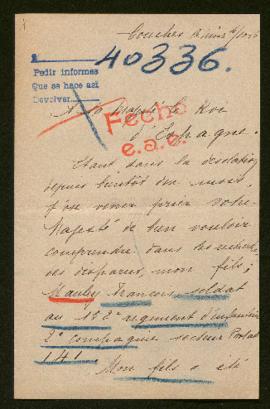 40336.
Pedir informes
Que se hace así
Devolver
A sa Majesté le Roi
d'Espagne.
Fecho
e.a.e.
Etant dans la désolation
depuis bientôt deux mois,
j'ose venir prier votre
Majesté de bien vouloir
comprendre dans les recherches
des disparus, mon fils;
François, soldat
au 152e régiment d'infanterie
2e compagnie secteur Postal
141.
Mon fils a été